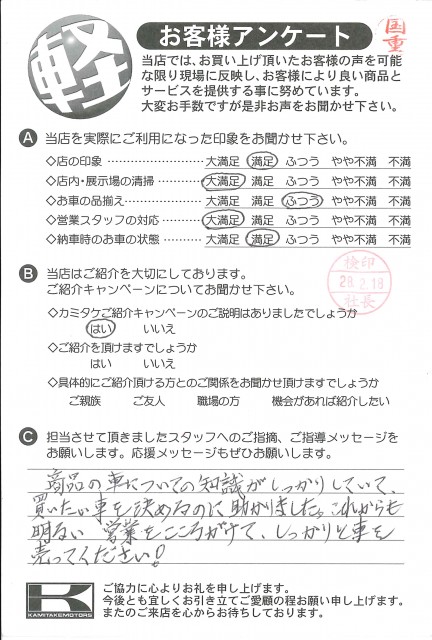 軽
お客様アンケート
国重
当店では、お買い上げ頂いたお客様の声を可能
な限り現場に反映し、お客様により良い商品と
サービスを提供する事に努めています。
大変お手数ですが是非お声をお聞かせ下さい。
A 当店を実際にご利用になった印象をお聞かせ下さい。
◇店の印象 ………………… 大満足 満足 ふつう やや不満 不満
◇店内・展示場の清掃 ………… 大満足 満足 ふつう やや不満 不満
◇お車の品揃え ……………… 大満足 満足 ふつう やや不満 不満
◇営業スタッフの対応 ………… 大満足 満足 ふつう やや不満 不満
◇納車時のお車の状態 ………… 大満足 満足 ふつう やや不満 不満
検印
28.2.18
社長
B 当店はご紹介を大切にしてあります。
ご紹介キャンペーンについてお聞かせ下さい。
◇カミタケご紹介キャンペーンのご説明はありましたでしょうか
はい いいえ
◇ご紹介を頂けますでしょうか
はい いいえ
◇具体的にご紹介頂ける方とのご関係をお聞かせ頂けますでしょうか
ご親族 ご友人 職場の方 機会があれば紹介したい
C 担当させて頂きましたスタッフへのご指摘、ご指導メッセージを
お願いします。応援メッセージもぜひお願いします。
商品の車についての知識がしっかりしていて、
買いたい車を決めるのに助かりました。これからも
明るい 営業をこころがけて、しっかりと車を
売ってください!
K
KAMITAKEMOTORS
ご協力に心よりお礼を申し上げます。
今後とも宜しくお引き立てご愛顧の程お願い申し上げます。
またのご来店を心からお待ちしております。